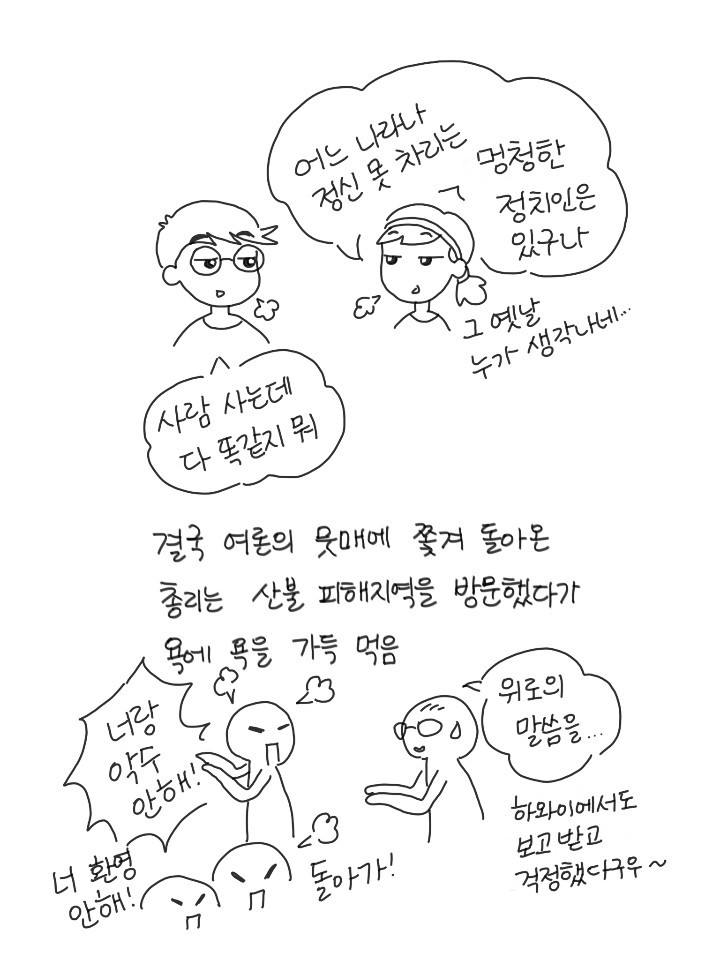 어느 나라나
정신 못 차리는
멍청한
정치인은
있구나
그 옛날
누가 생각나네...
사람 사는데
다 똑같지 뭐
결국 여론의 뭇매에 쫓겨 돌아온
총리는 산불 피해지역을 방문했다가
욕에 욕을 가득 먹음
너랑
악수
안해!
위로의
말씀을...
하와이에서도
보고 받고
걱정했다구우~
너 환영
안해!
돌아가!